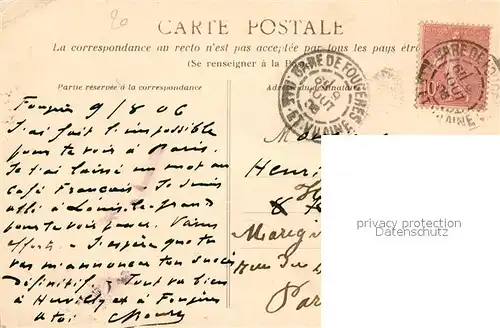 20
CARTE POSTALE
La correspondance au recto n'est pas acceptée par tous les pays étr
(Se renseigner à la Po
Partie réservée à la correspondance
Adresse du destinataire
GARE DE FOUGÈRES
ILLE & VILAINE
9
AOUT
06
10
Fougères 9/8 06
J'ai fait l'impossible
pour te voir à Paris.
Je t'ai laissé un mot au
café Français. Je suis
allé à Louis-le-grand
pour te voir passer. Vains
efforts. J'espère que tu
vas m'annoncer ton succès
Définitif. Tout va bien
à et à Fougères
à toi
Henri
rue du
Par
privacy protection
Datenschutz